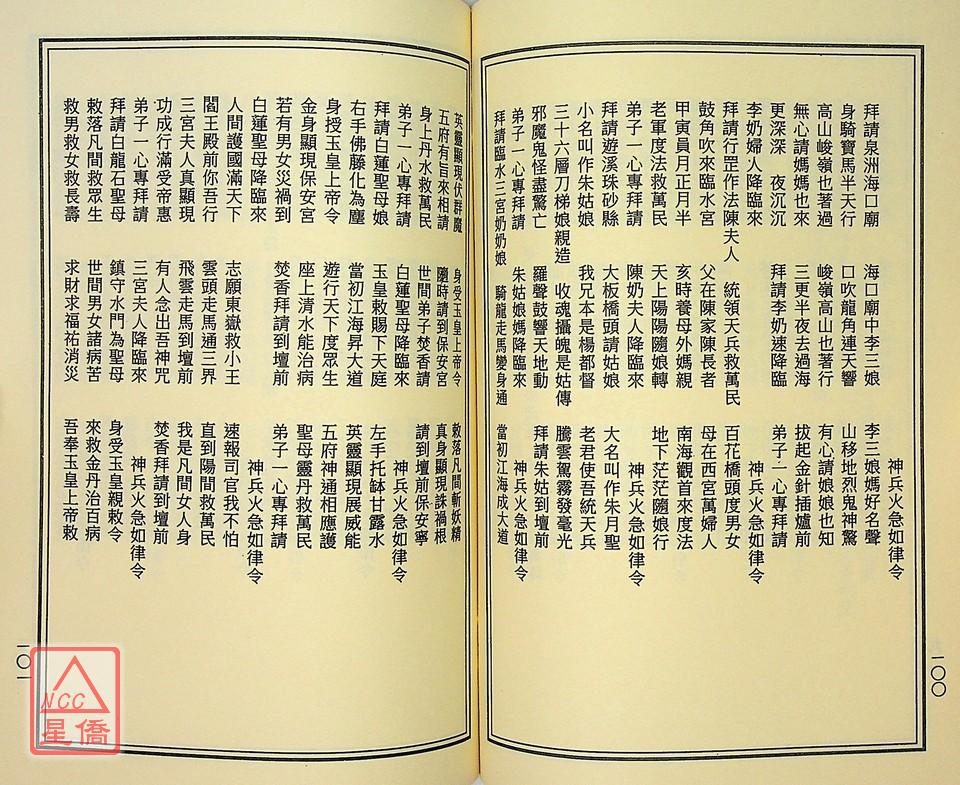 神兵火急如律令
拜請泉洲海口廟　海口廟中李三娘　李三娘媽好名聲
身騎寶馬半天行　口吹龍角連天響　山移地烈鬼神驚
高山峻嶺也著過　峻嶺高山也著行　有心請娘娘也知
無心請媽媽也來　三更半夜去過海　拔起金針插爐前
更深深　夜沉沉　拜請李奶速降臨　弟子一心專拜請
李奶婦人降臨來　神兵火急如律令
拜請行罡作法陳夫人　統領天兵救萬民　百花橋頭度男女
鼓角吹來臨水宮　父在陳家陳長者　母在西宮萬婦人
甲寅員月正月半　亥時養母外媽親　南海觀首來度法
老軍度法救萬民　天上陽陽隨娘轉　地下茫茫隨娘行
弟子一心專拜請　陳奶夫人降臨來　神兵火急如律令
拜請遊溪珠砂縣　大板橋頭請姑娘　大名叫作朱月聖
小名叫作朱姑娘　我兄本是楊都督　老君使吾統天兵
三十六層刀梯娘親造　收魂攝魄是姑傳　騰雲駕霧發毫光
邪魔鬼怪盡驚亡　羅聲鼓響天地動　拜請朱姑到壇前
弟子一心專拜請　朱姑娘媽降臨來　神兵火急如律令
拜請臨水三宮奶奶娘　騎龍走馬變身通　當初江海成大道
一〇〇
英靈顯現伏群魔　身受玉皇上帝令　敕落凡間斬妖精
五府有旨來相請　隨時請到保安宮　真身顯現誅禍根
身上丹水救萬民　世間弟子焚香請　請到壇前保安寧
弟子一心專拜請　白蓮聖母降臨來　神兵火急如律令
拜請白蓮聖母娘　玉皇敕賜下天庭　左手托缽甘露水
右手佛藤化為塵　當初江海昇大道　英靈顯現展威能
身授玉皇上帝令　遊行天下度眾生　五府神通相應護
金身顯現保安宮　座上清水能治病　聖母靈丹救萬民
若有男女災禍到　焚香拜請到壇前　弟子一心專拜請
白蓮聖母降臨來　神兵火急如律令
人間護國滿天下　志願東嶽救小王　速報司官我不怕
閻王殿前你吾行　雲頭走馬通三界　直到陽間救萬民
三宮夫人真顯現　飛雲走馬到壇前　我是凡間女人身
功成行滿受帝惠　有人念出吾神咒　焚香拜請到壇前
弟子一心專拜請　三宮夫人降臨來　神兵火急如律令
拜請白龍石聖母　鎮守水門為聖母　身受玉皇親敕令
敕落凡間救眾生　世間男女諸病苦　來救金丹治百病
救男救女救長壽　求財求福祐消災　吾奉玉皇上帝敕
一〇一
NCC
星僑